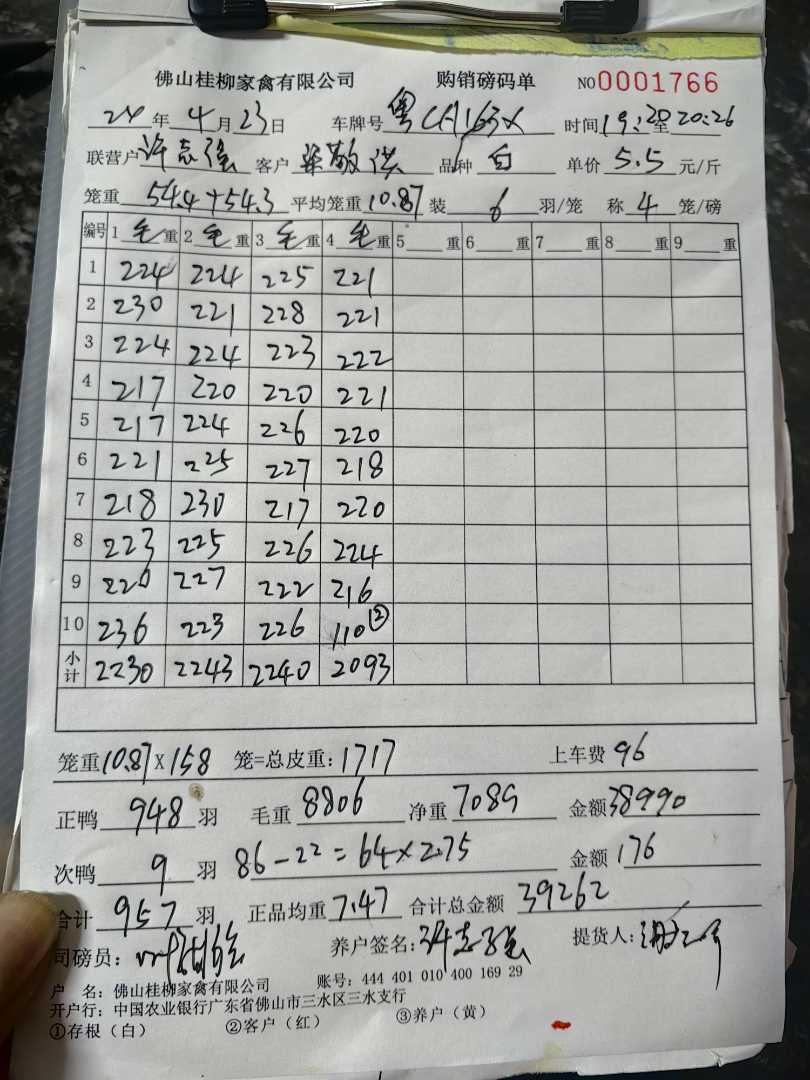 佛山桂柳家禽有限公司 购销磅码单 NO0001766
24年4月23日 车牌号粤CA163X 时间19:20至20:26
联营户许志强 客户梁敬洪 品种白 单价5.5元/斤
笼重54.4+54.3 平均笼重10.87 装6羽/笼 称4笼/磅
编号 1毛重 2毛重 3毛重 4毛重 5重 6重 7重 8重 9重
1 224 224 225 221
2 230 221 228 221
3 224 224 223 222
4 217 220 220 221
5 217 224 226 220
6 221 225 227 218
7 218 230 217 220
8 223 225 226 224
9 220 227 222 216
10 236 223 226 110②
小计 2230 2243 2240 2093
笼重10.87X158 笼=总皮重:1717 上车费96
正鸭948羽 毛重8806 净重7089 金额38990
次鸭9羽 86-22=64×2.75 金额176
合计957羽 正品均重7.47 合计总金额39262
司磅员: 养户签名:许志强 提货人:
户 名:佛山桂柳家禽有限公司 账号:444 401 010 400 169 29
开户行:中国农业银行广东省佛山市三水区三水支行
①存根(白) ②客户(红) ③养户(黄)